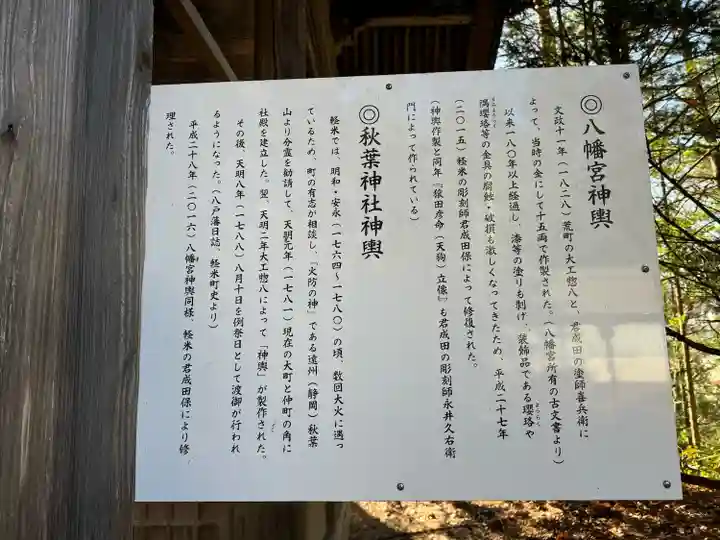 ◎八幡宮神輿
文政十一年(一八二八)荒町の大工惣八と、君成田の塗師喜兵衛に
よって、当時の金にして十五両で作製された。(八幡宮所有の古文書より)
以来一八〇年以上経過し、漆等の塗りも剥げ、装飾品である瓔珞や
隅瓔珞等の金具の腐蝕・破損も激しくなってきたため、平成二十七年
(二〇一五)軽米の彫刻師君成田保によって修復された。
(神輿作製と同年『猿田彦命(天狗)立像』も君成田の彫刻師永井久右衛
門によって作られている)
◎秋葉神社神輿
軽米では、明和・安永(一七六四~一七八〇)の頃、数回大火に遇っ
ているため、町の有志が相談し、『火防の神』である遠州(静岡)秋葉
山より分霊を勧請して、天明元年(一七八一)現在の大町と仲町の角に
社殿を建立した。翌、天明二年大工惣八によって「神輿」が製作された。
その後、天明八年(一七八八)八月十日を例祭日として渡御が行われ
るようになった。(八戸藩日誌、軽米町史より)
平成二十八年(二〇一六)八幡宮神輿同様、軽米の君成田保により修
理された。